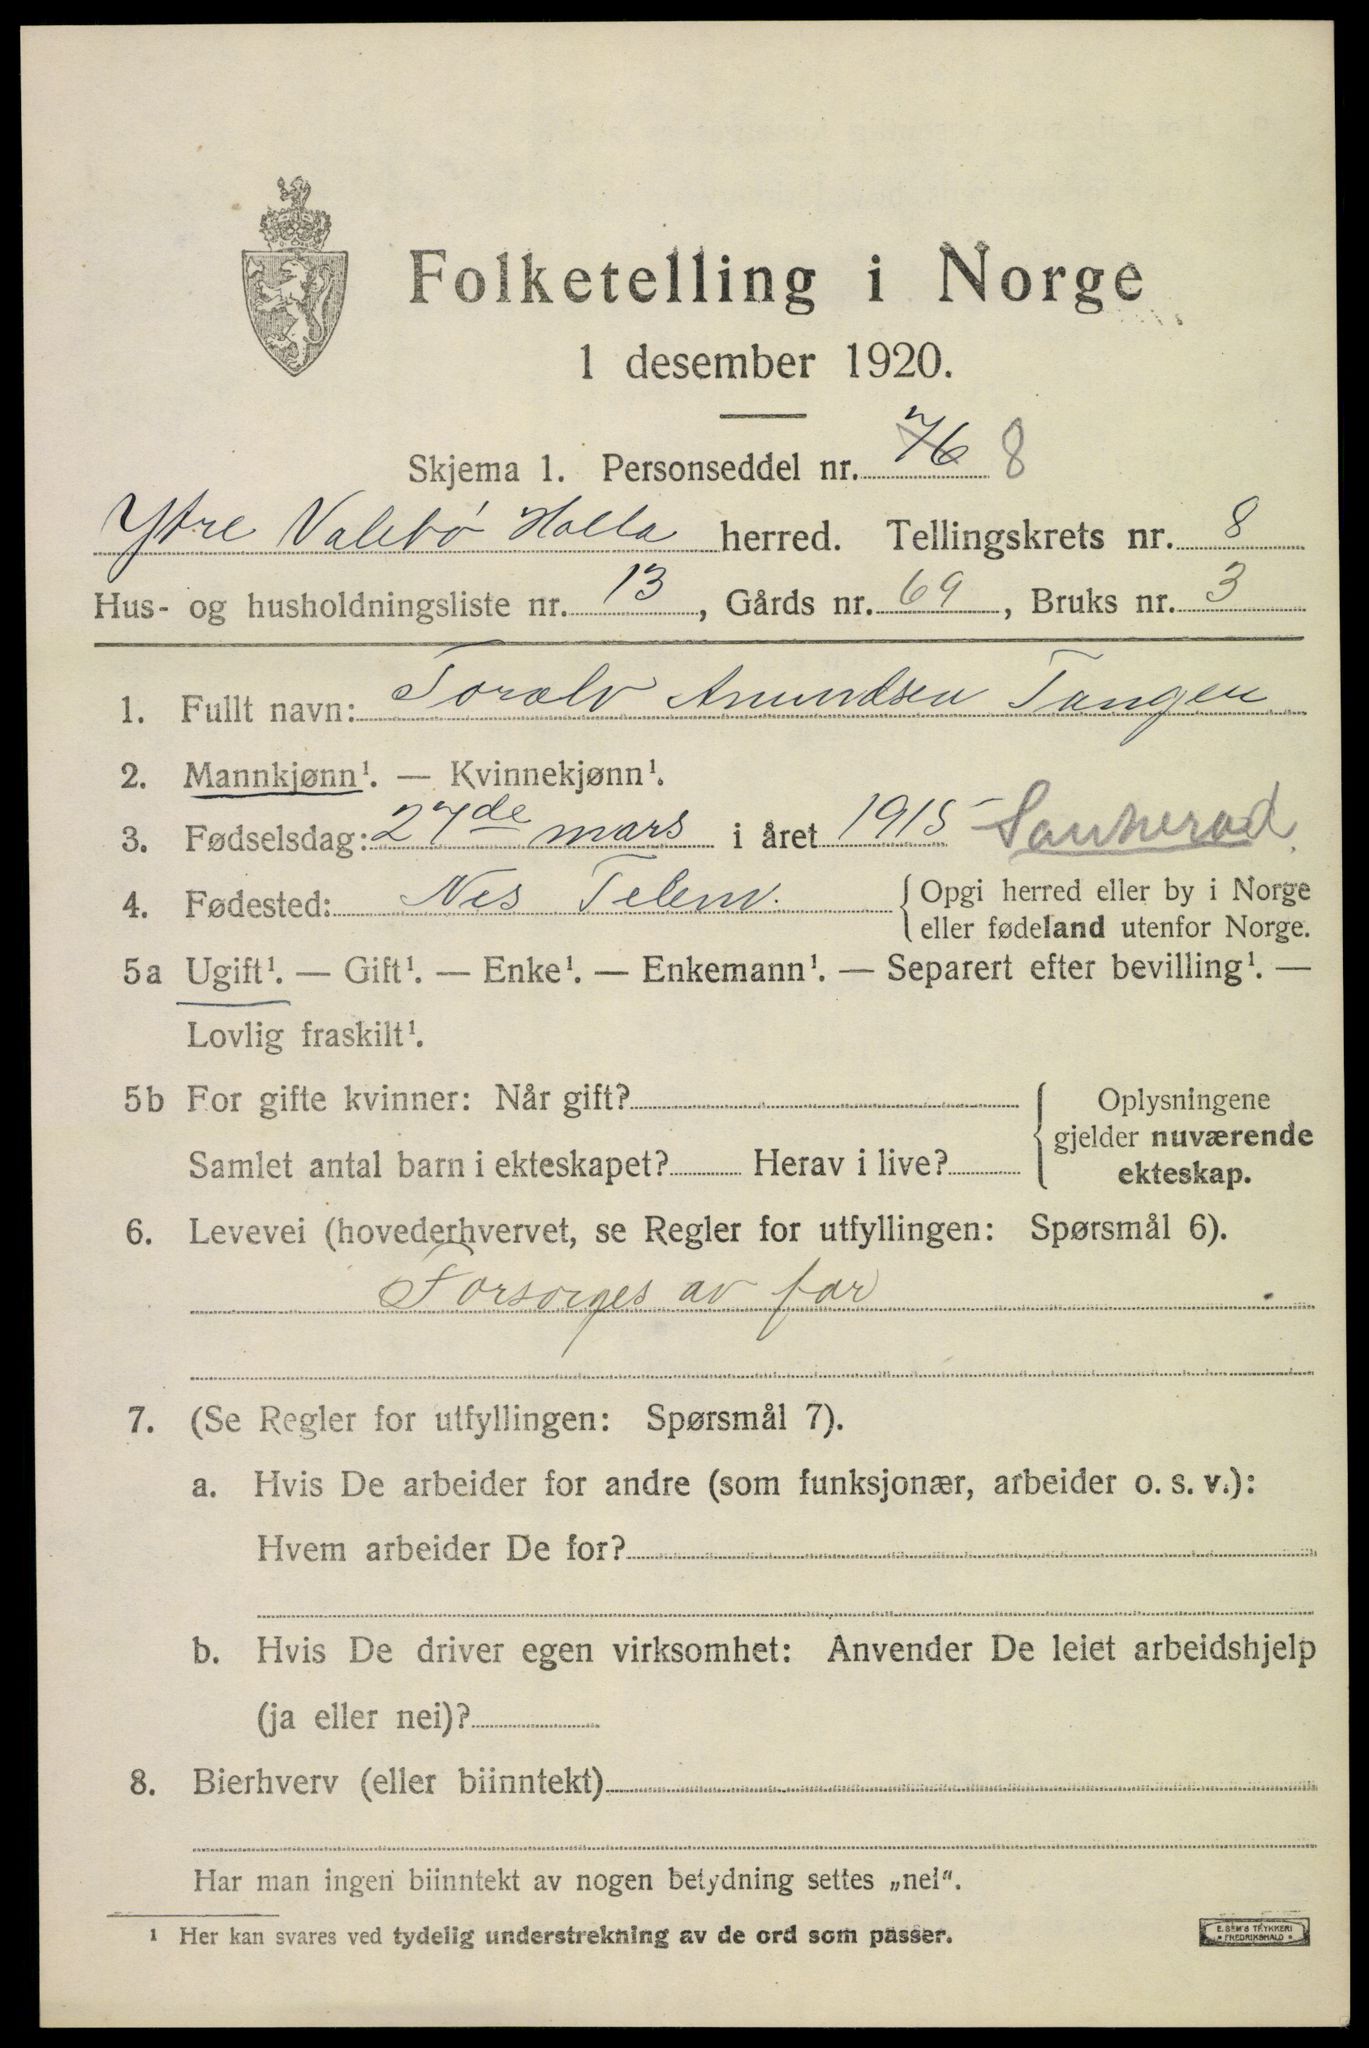 Folketelling i Norge
1 desember 1920.
Skjema 1. Personseddel nr. 76 8
Ytre Valebø Holla herred. Tellingskrets nr. 8
Hus- og husholdningsliste nr. 13, Gårds nr. 69, Bruks nr. 3
1. Fullt navn: Toralv Amundsen Tangen
2. Mannkjønn¹. — Kvinnekjønn¹.
3. Fødselsdag: 27de mars i året 1915 Sauherad
4. Fødested: Nes Telem. {Opgi herred eller by i Norge
eller fødeland utenfor Norge.
5a Ugift¹. — Gift¹. — Enke¹. — Enkemann¹. — Separert efter bevilling¹. —
Lovlig fraskilt¹.
5b For gifte kvinner: Når gift? Oplysningene
gjelder nuværende
Samlet antal barn i ekteskapet? Herav i live? ekteskap.
6. Levevei (hovederhvervet, se Regler for utfyllingen: Spørsmål 6).
Forsørges av far
7. (Se Regler for utfyllingen: Spørsmål 7).
a. Hvis De arbeider for andre (som funksjonær, arbeider o. s. v.):
Hvem arbeider De for?
b. Hvis De driver egen virksomhet: Anvender De leiet arbeidshjelp
(ja eller nei)?
8. Bierhverv (eller biinntekt)
Har man ingen biinntekt av nogen betydning settes „nei“.
¹ Her kan svares ved tydelig understrekning av de ord som passer.
E. SEM'S TRYKKERI
• FREDRIKSHALD •